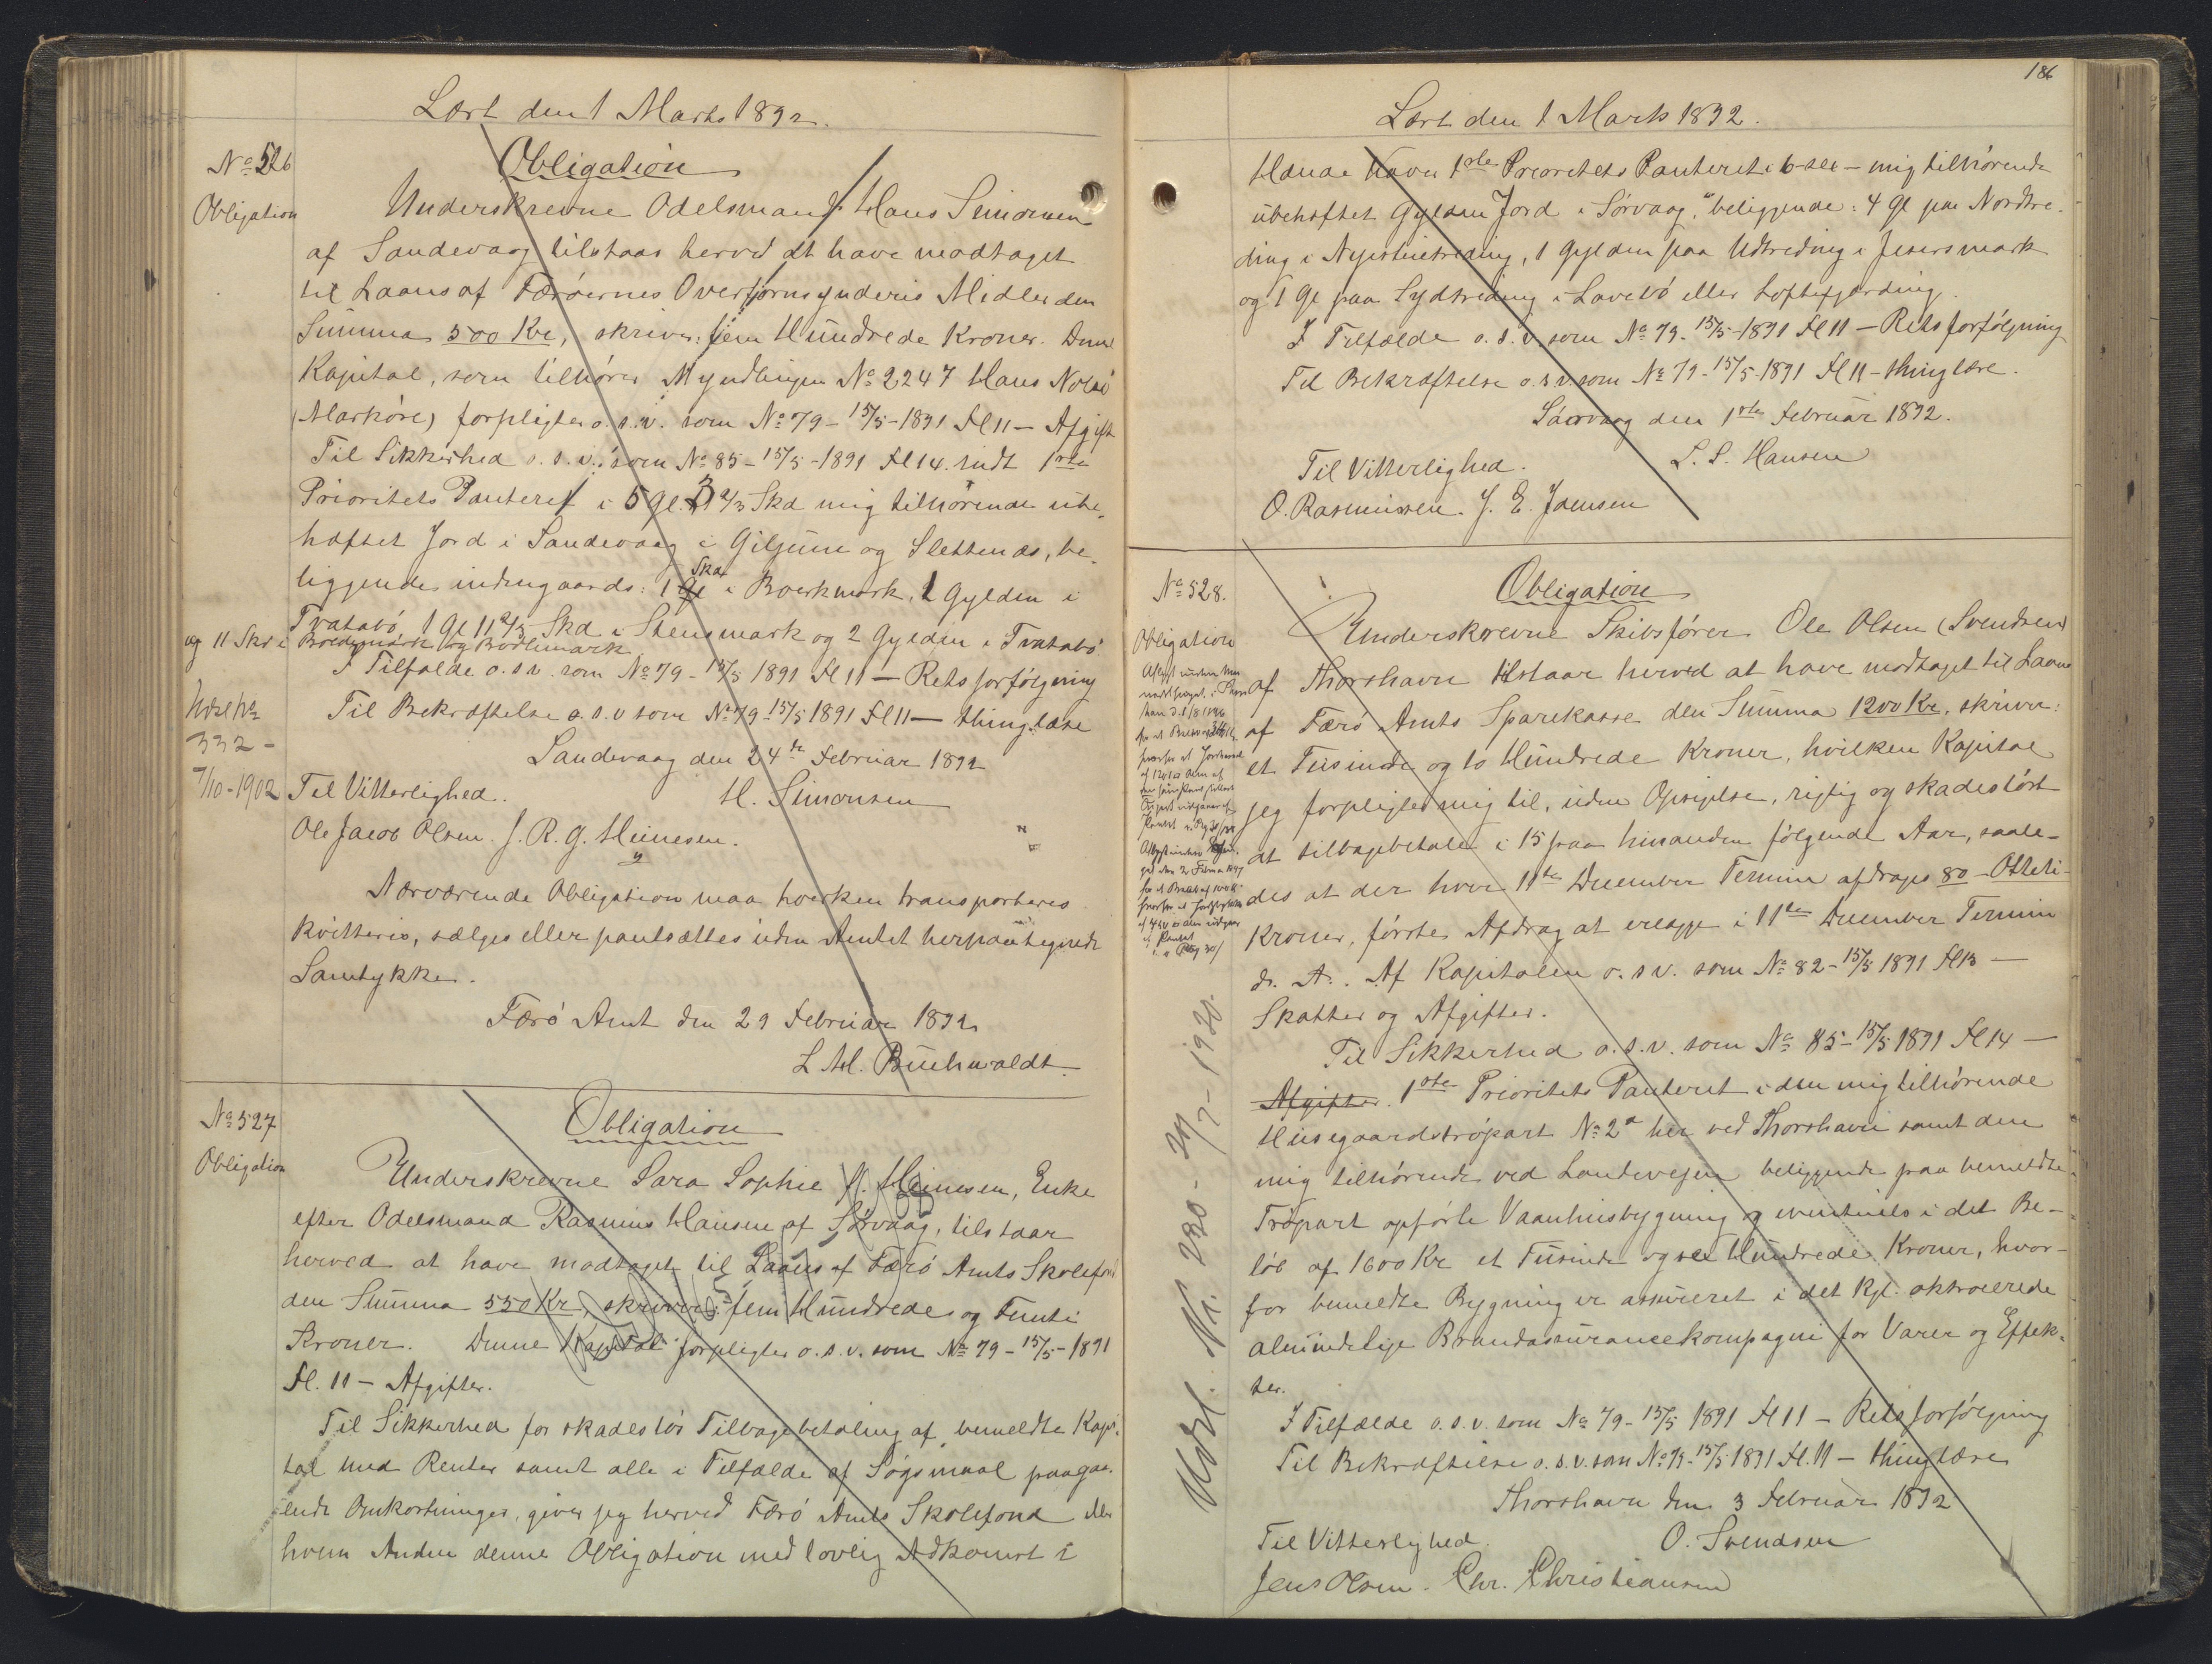 Læst den 1 Marts 1892.
No 526
Obligation
Obligation
Underskrevne Odelsmand Hans Simonsen
af Sandevaag tilstaar herved at have modtaget
til Laans af Færøernes Overformynderis Midler den
Summa 500 Kr, skriver: fem Hundrede Kroner. Denne
Kapital, som tilhører Myndlingen No 2247 Hans
forpligter o.s.v. som No 79 - 15/5 - 1891 Fl 11 - Afgift
Til Sikkerhed o.s.v. som No 85 - 15/5 - 1891 Fl 14. indt 1ste
Prioritets Panteret i 5 Gl. 2/3 Skd mig tilhørende ube-
hæftet Jord i Sandevaag i Giljum og Slettenæs, be-
liggende indengaards: 1 Skd i 1 Gylden i
Tvatabø 1 Gl 11 2/3 Skd i Stensmark og 2 Gylden i Tvatabø
og 11 Skd i
I Tilfælde o.s.v. som No 79 - 15/5 1891 Fl 11 - Retsforfølgning
Til Bekræftelse o.s.v som No 79 - 15/5 1891 Fl 11 - thinglæse
Sandevaag den 24de Februar 1892
332 -
7/10 - 1902
Til Vitterlighed. H. Simonsen
Ole Jacob Olsen. J. R. G. Heinesen.
Nærværende Obligation maa hverken transporteres
kvitteres, sælges eller pantsættes uden Amtet herpaategnede
Samtykke.
Færø Amt den 29 Februar 1892
L. H. Buchwaldt.
No 527
Obligation
Obligation
Underskrevne Sara Sophie Heinesen, Enke
efter Odelsmand Rasmus Hansen af Sørvaag, tilstaar
herved at have modtaget til Laans af Færø Amts Skolefond
den Summa 550 Kr, skriver: fem Hundrede og Femti
Kroner. Denne Kapital forpligter o.s.v. som No 79 - 15/5 - 1891
Fl. 11 - Afgifter.
Til Sikkerhed for skadesløs Tilbagebetaling af bemeldte Kapi-
tal med Renter samt alle i Tilfælde af Søgsmaal paagaa-
ende Omkostninger, giver jeg herved Færø Amts Skolefond eller
hvem Anden denne Obligation med lovlig Adkomst i
186
Læst den 1 Marts 1892.
Hænde haver 1ste Prioritets Panteret i 6 sex - mig tilhørende
ubehæftet Gylden Jord i Sørvaag, beliggende: 4 Gl paa Nordtre-
ding i 1 Gylden paa Udtreding i
og 1 Gl paa Sydtreding i eller
I Tilfælde o.s.v. som No 79 - 15/5 - 1891 Fl 11 - Retsforfølgning
Til Bekræftelse o.s.v. som No 79 - 15/5 1891 Fl 11 - thinglæse.
Sørvaag den 1ste Februar 1892.
Til Vitterlighed. S. S. Hansen
O. Rasmussen. J. E. Joensen
No 528.
Obligation
Obligation
Underskrevne Skibsfører Ole Olsen (Svendsen)
af Thorshavn tilstaar herved at have modtaget til Laans
af Færø Amts Sparekasse den Summa 1200 Kr. skriver:
et Tusinde og to Hundrede Kroner, hvilken Kapital
jeg forpligter mig til, uden Opsigelse, rigtig og skadesløst
at tilbagebetale i 15 paa hinanden følgende Aar, saale-
des at der hver 11te December Termin afdrages 80 - Otteti-
Kroner, første Afdrag at erlægge i 11te December Termin
d. A. Af Kapitalen o.s.v. som No 82 - 15/5 1891 Fl 13 -
Skatter og Afgifter.
Til Sikkerhed o.s.v. som No 85 - 15/5 1891 Fl 14 -
Afgifter. 1ste Prioritets Panteret i den mig tilhørende
Husegaardstrøpart No 2a her ved Thorshavn samt den
mig tilhørende ved Landevejen beliggende paa bemeldte
Trøpart opførte Vaanhusbygning og eventuels i det Be-
løb af 1600 Kr et Tusinde og sex Hundrede Kroner, hvor-
for bemeldte Bygning er assureret i det kgl. oktroierede
almindelige Brandassurancekompagni for Varer og Effek-
ter.
I Tilfælde o.s.v. som No 79 - 15/5 1891 Fl 11 - Retsforfølgning
Til Bekræftelse o.s.v. som No 79 - 15/5 1891 Fl. 11 - thinglæse
Thorshavn den 3 Februar 1892
Til Vitterlighed. O. Svendsen
Jens Olsen. Chr. Christiansen
Udsl. Nr. 230 - 1920.